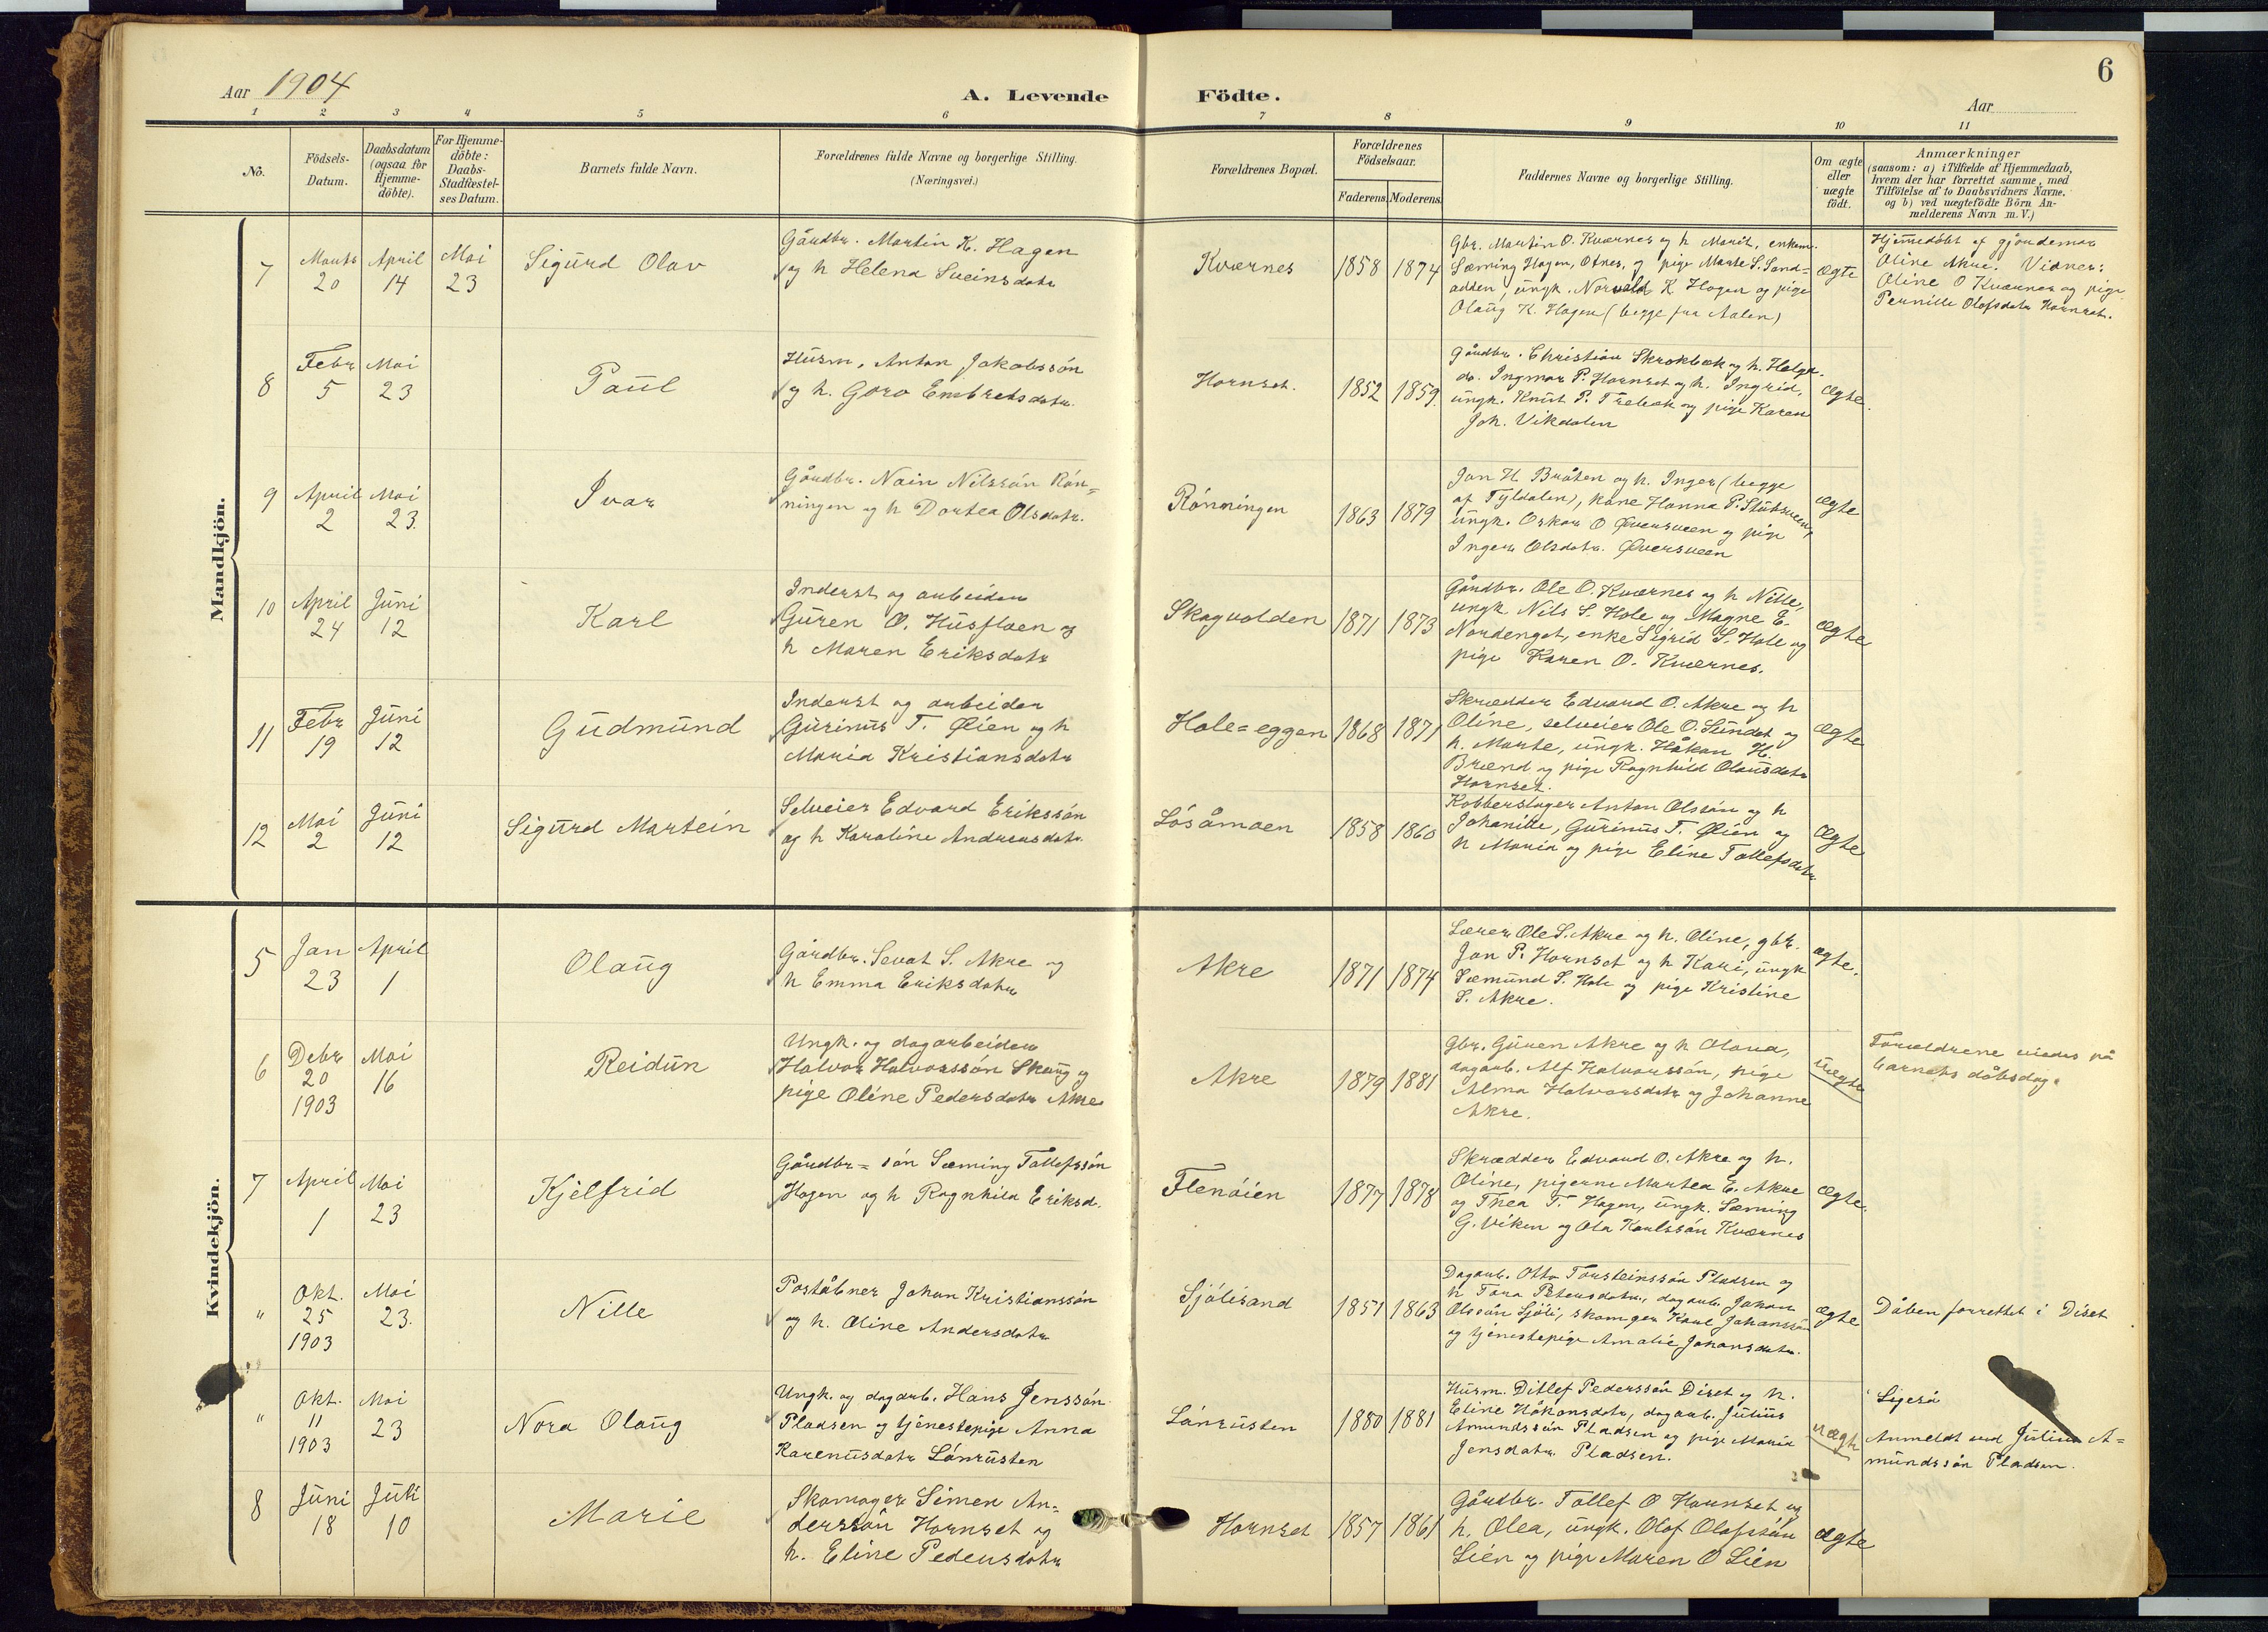 Aar 1904
A. Levende Födte.
6
Aar
1 2 3 4 5 6 7 8 9 10 11
No.
Födsels-Datum.
Daabsdatum (ogsaa for Hjemme-döbte).
For Hjemme-döbte: Daabs-Stadfæstel-ses Datum.
Barnets fulde Navn.
Forældrenes fulde Navne og borgerlige Stilling.
(Næringsvei.)
Forældrenes Bopæl.
Forældrenes Födselsaar.
Faderens. Moderens.
Faddernes Navne og borgerlige Stilling.
Om ægte eller uægte födt.
Anmærkninger
(saasom: a) i Tilfælde af Hjemmedaab,
hvem der har forrettet samme, med
Tilföielse af to Daabsvidners Navne.
og b) ved uægtefödte Börn An-
melderens Navn m. V.)
Mandkjön.
7
Marts 20
April 14
Mai 23
Sigurd Olav
Gårdbr. Martin K. Hagen
og h Helena Sveinsdatr
Kværnes
1858 1874
Gbr. Martin O. Kværnes og h Marit, enkem.
Sæming Hagen, Otnes, og pige Marte S. Sand=
odden, ungk. Norvald K. Hagen og pige
Olaug K. Hagen (begge fra Aalen)
ægte
Hjemmedøbt af gjordemor
Oline Akre. Vidner:
Oline O Kværnes og pige
Pernille Olofsdatr Hornset.
8
Febr 5
Mai 23
Paul
Husm. Anton Jakobssön
og h. Goro Embretsdatr.
Hornset.
1852 1859.
Gårdbr. Christian Skrokbæk og h. Helga.
do. Ingmar P. Hornset og h. Ingrid,
ungk. Knut P. Trebæk og pige Karen
Joh. Vikdalen
ægte.
9
April 2
Mai 23.
Ivar
Gårdbr. Nain Nilssön Rön=
ningen og h Dortea Olsdatr.
Rönningen
1863 1879
Jon H Bråten og h. Inger (begge
af Tyldalen), kone Hanna P. Stubsveen,
ungk. Oskar O Øversveen og pige
Inger Olsdatr. Øversveen
ægte
10
April 24
Juni 12
Karl
Inderst og arbeider
Guren O. Husfloen og
h Maren Eriksdatr
Skogvolden
1871 1873
Gårdbr. Ole O. Kværnes og h Nille,
ungk. Nils S. Hole og Magne E.
Nordenget, enke Sigrid S. Hole og
pige Karen O. Kværnes.
ægte
11
Febr 19
Juni 12
Gudmund
Inderst og arbeider
Gurinus T. Øien og h
Maria Kristiansdatr
Hole=eggen
1868 1871
Skrædder Edvard O. Akre og h
Oline, selveier Ole O. Sundet og
h. Marte, ungk. Håkon H.
Brænd og pige Ragnhild Olausdatr
Hornset.
ægte
12
Mai 2
Juni 12
Sigurd Martein
Selveier Edvard Erikssön
og h Karoline Andreasdatr.
Lösåmoen
1858 1860
Kobberslager Anton Olssön og h
Johanitte, Gurinus T. Øien og
h Maria og pige Eline Tollefsdatr
ægte
Kvindekjön.
5
Jan 23
April 1
Olaug
Gårdbr. Sevat S. Akre og
h Emma Eriksdatr
Akre
1871 1874
Lærer Ole S. Akre og h. Oline, gbr.
Jon P. Hornset og h Kari, ungk
Sæmund S. Hole og pige Kristine
S. Akre.
ægte.
6
Debr 20 1903
Mai 16
Reidun
Ungk. og dagarbeider
Halvor Halvorssön Skaug og
pige Oline Pedersdatr Akre
Akre
1879 1881
Gbr. Guren Akre og h Olava,
dagarb. Alf Halvorssön, pige
Alma Halvorsdatr og Johanne
Akre.
uægte
Forældrene viedes på
barnets dåbsdag.
7
April 1
Mai 23
Kjelfrid
Gårdbr=sön Sæming Tollefssön
Hagen og h Ragnhild Eriksd.
Flenöien
1877 1878
Skrædder Edvard O. Akre og h.
Oline, pigerne Martea E. Akre
og Thea T. Hagen, ungk. Sæming
G. Viken og Ola Karlssön Kværnes
ægte.
"
Okt. 25 1903
Mai 23.
Nille
Poståbner Johan Kristianssön
og h. Oline Andersdatr
Sjölisand
1851 1863
Dagarb. Otto Torsteinssön Pladsen og
h Tora Petersdatr, dagarb. Johan
Olssön Sjöli, skomger Karl Johanssön
og tjenestepige Amalie Johansdatr.
ægte
Dåben forrettet i Diset
"
Okt. 11 1903
Mai 23
Nora Olaug
Ungk. og dagarb. Hans Jenssön
Pladsen og tjenestepige Anna
Karenusdatr Lönrusten
Lönrusten
1880 1881
Husm. Ditlef Pederssön Diset og h.
Eline Håkonsdatr, dagarb. Julius
Amundssön Pladsen og pige Maria
Jensdatr Pladsen.
uægte
Ligeså
Anmeldt ved Julius A=
mundssön Pladsen.
8
Juni 18
Juli 10
Marie
Skomager Simen An=
derssön Hornset og
h. Eline Pedersdatr
Hornset
1857 1861
Gårdbr. Tollef O Hornset og
h. Olea, ungk. Olof Olofssön
Lien og pige Maren O Lien
ægte